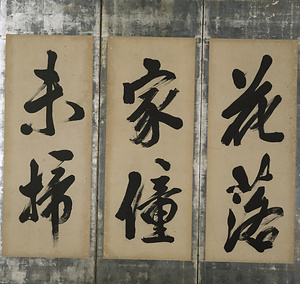 花落
家僮
未掃